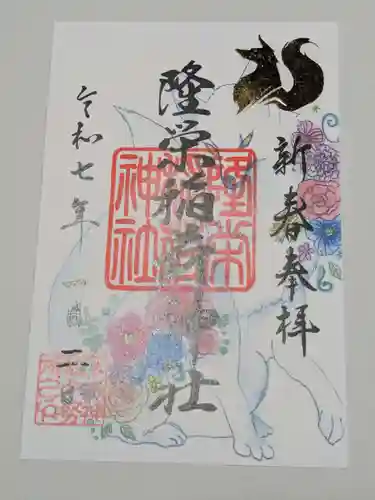 新春奉拝
隆栄稲荷神社
隆栄稲荷神社
令和七年 一月 二日